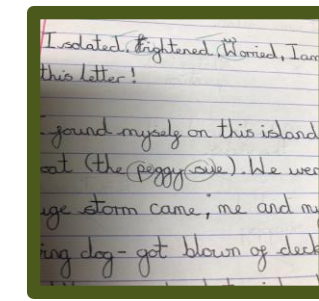 Isolated, frightened, Worried, I am
this letter!
I found myself on this island
oat (the peggy sue). We wer
uge storm came; me and my
ing dog - got blown of deck